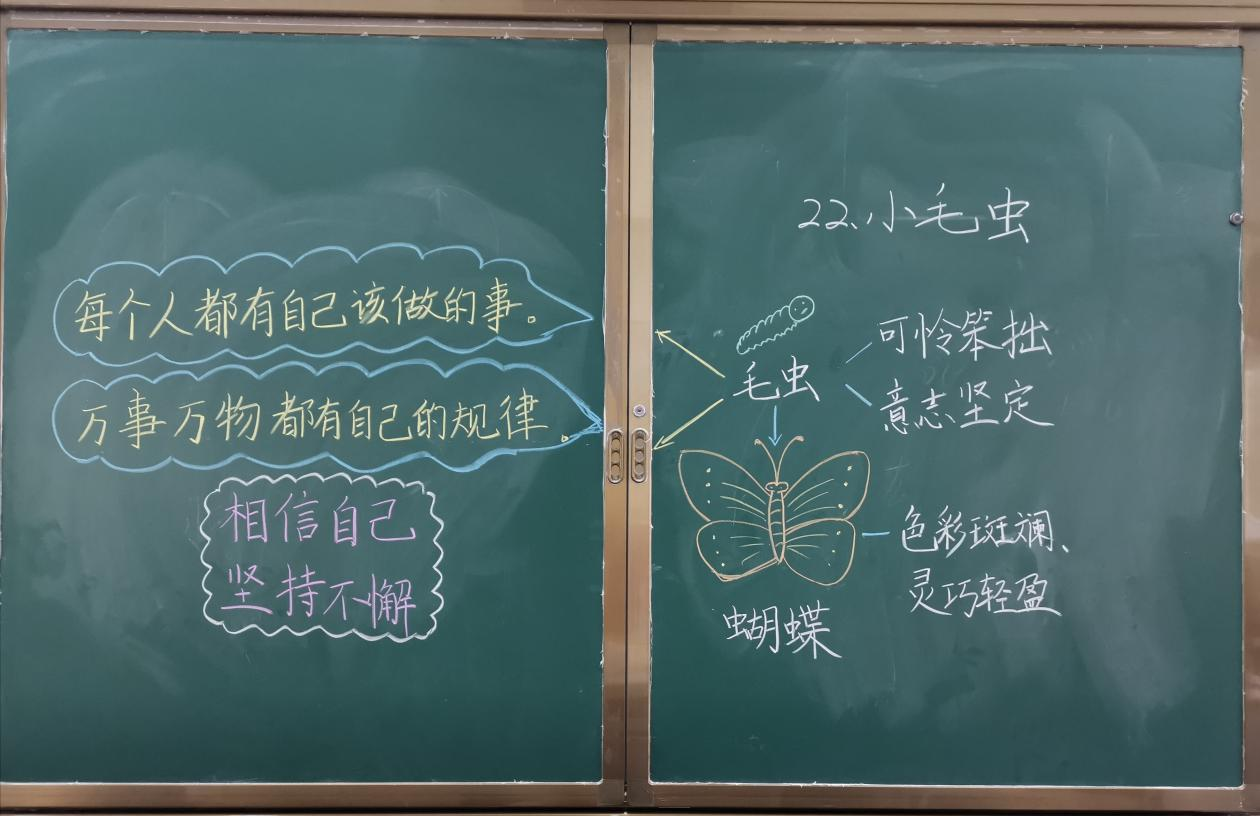 每个人都有自己该做的事。
万事万物都有自己的规律。
相信自己
坚持不懈
22、小毛虫
毛虫
可怜笨拙
意志坚定
色彩斑斓、
灵巧轻盈
蝴蝶